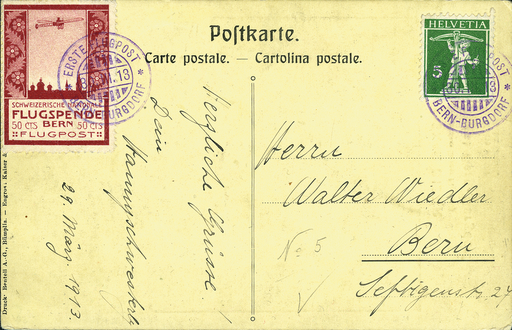 Postkarte.
Carte postale. — Cartolina postale.
SCHWEIZERISCHE NATIONALE
FLUGSPENDE
50 CTS BERN 50 CTS
FLUGPOST
ERSTE FLUGPOST
BERN-BURGDORF
HELVETIA
5
FLUGPOST
13
BERN-BURGDORF
Herzliche Grüsse!
Dein
29. März 1913.
Herrn
Walter Wiedler
Bern
Seftigenstr. 27
No 5
Druck: Benteli A.-G., Bümpliz. — Engros: Kaiser &